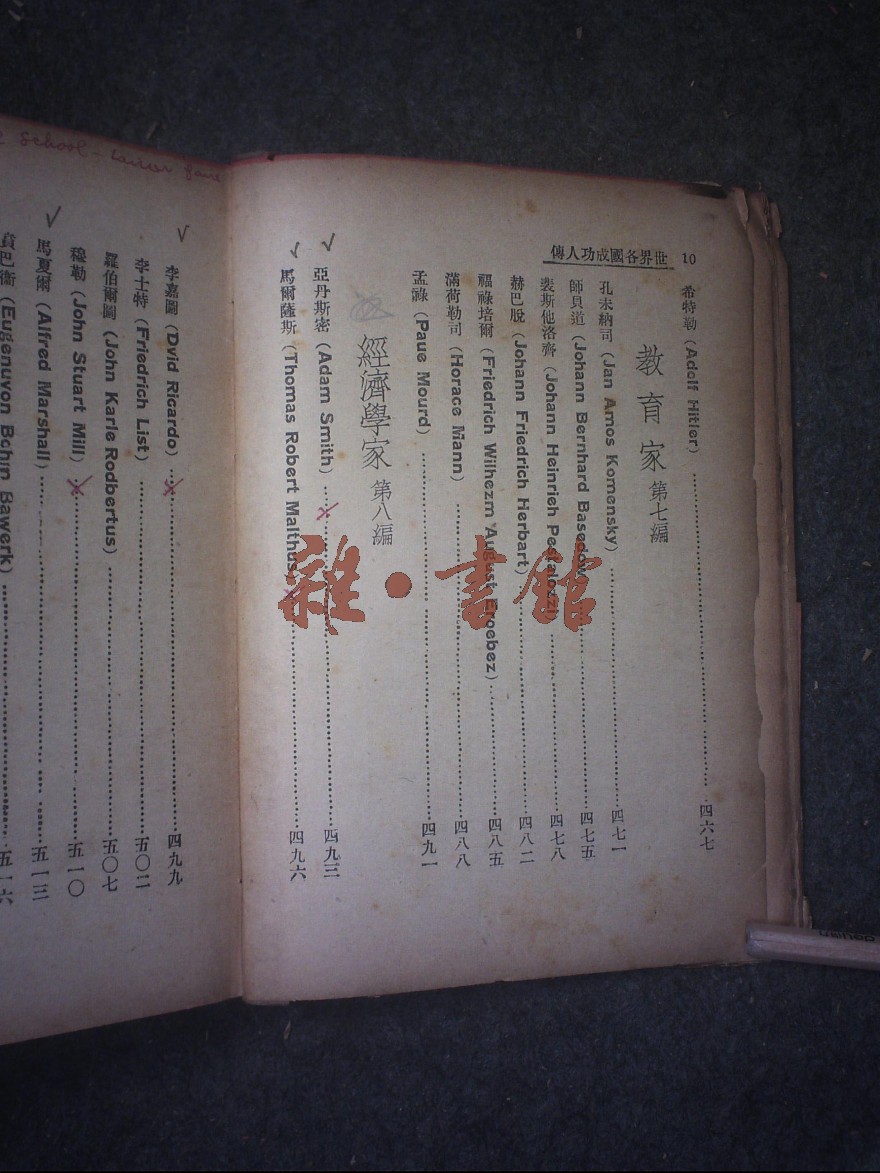 10 世界各國成功人傳
希特勒 (Adolf Hitler)……四六七
教育家 第七編
孔未納司 (Jan Amos Komensky)……四七一
師貝道 (Johann Bernhard Basedow)……四七五
裴斯他洛齊 (Johann Heinrieh Pestalozzi)……四七八
赫巴脫 (Johann Friedrich Herbart)……四八二
福祿培爾 (Friedrich Wilhezm August Froebez)……四八五
滿荷勒司 (Horace Mann)……四八八
孟祿 (Paue Mourd)……四九一
經濟學家 第八編
亞丹斯密 (Adam Smith)……四九三
馬爾薩斯 (Thomas Robert Malthus)……四九六
School –
李嘉圖 (Dvid Ricardo)……四九九
李士特 (Friedrich List)……五〇二
羅伯爾圖 (John Karle Rodbertus)……五〇七
穆勒 (John Stuart Mill)……五一〇
馬夏爾 (Alfred Marshall)……五一三
巴衞 (Eugenuvon Bohin Bawerk)……五一六
雜·書館